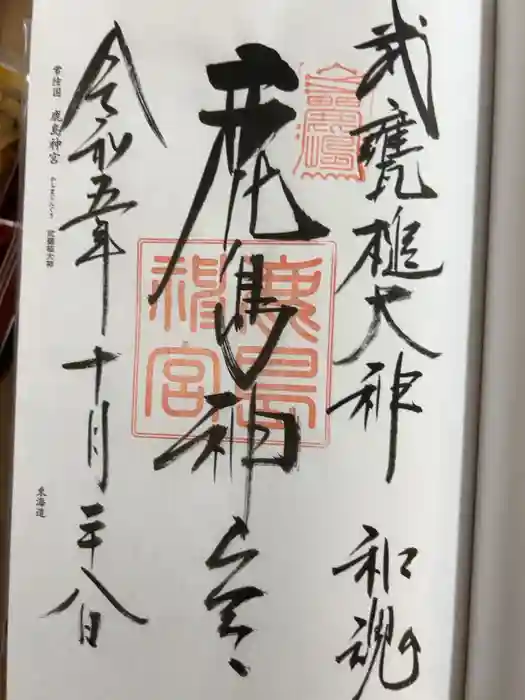 武甕槌大神 和魂
鹿島神宮
鹿島神宮
令和五年 十月 二十八日
常陸国 鹿島神宮 かしまじんぐう 武甕槌大神
東海道